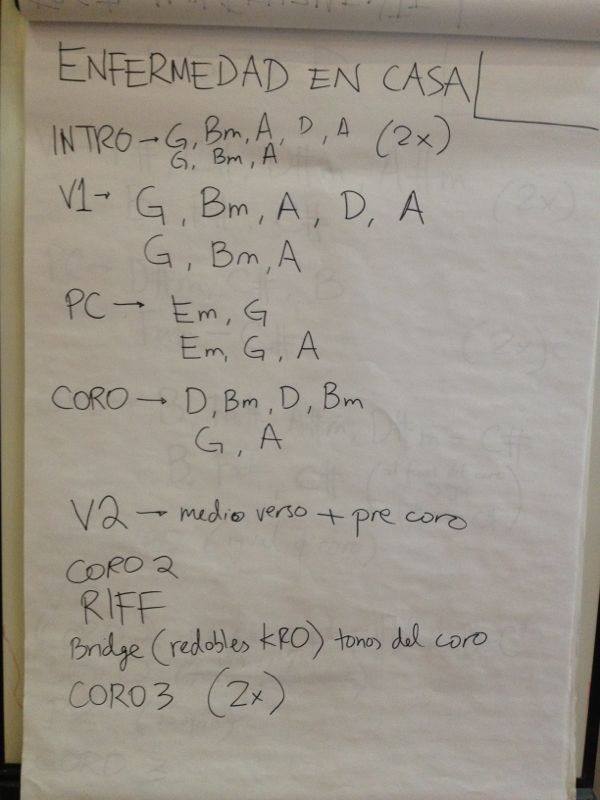 ENFERMEDAD EN CASA
INTRO → G, Bm, A, D, A (2x)
G, Bm, A
V1 → G, Bm, A, D, A
G, Bm, A
PC → Em, G
Em, G, A
CORO → D, Bm, D, Bm
G, A
V2 → medio verso + pre coro
CORO 2
RIFF
Bridge (redobles KRO) tonos del coro
CORO 3 (2x)